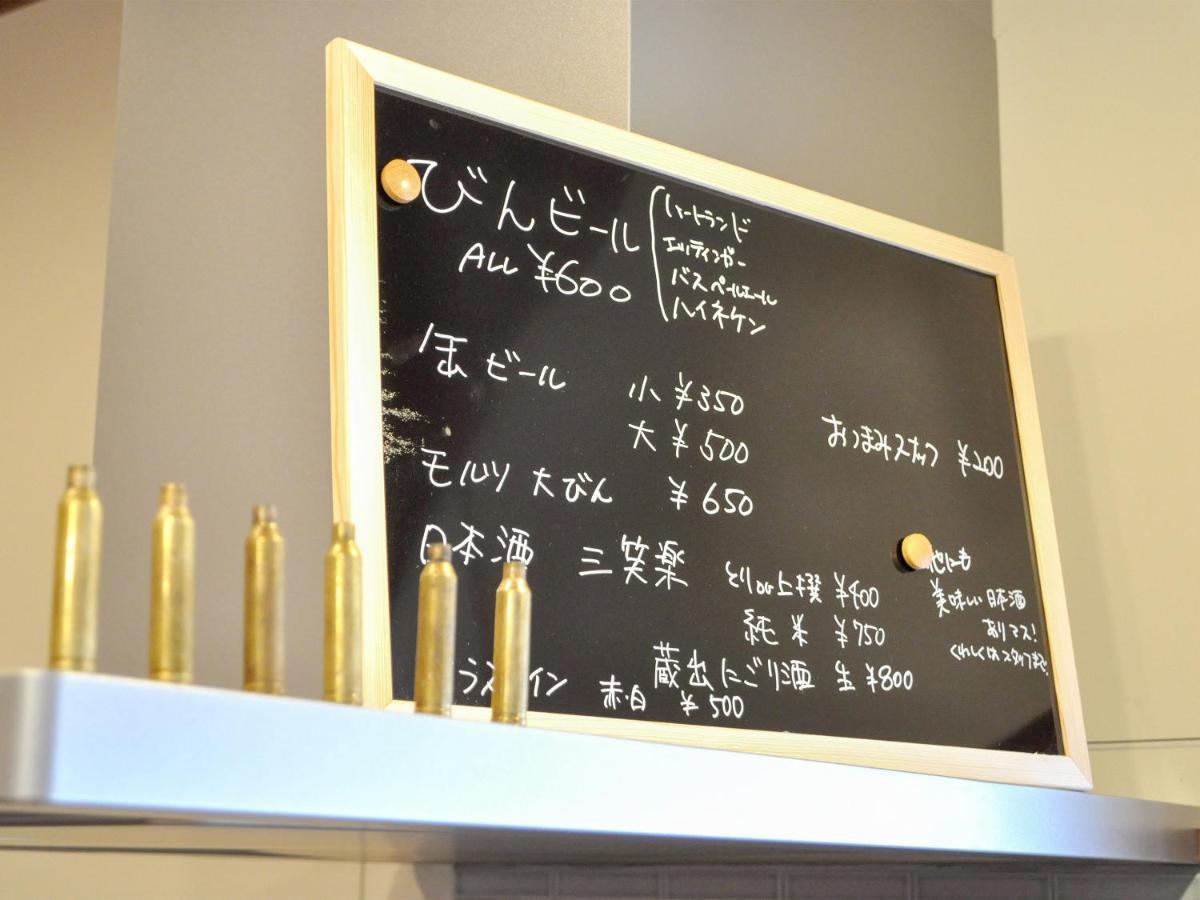 びんビール
ALL ¥600
ハートランド
エルディンガー
バスペールエール
ハイネケン
缶ビール 小 ¥350
大 ¥500
おつまみスナック ¥200
モルツ 大びん ¥650
日本酒 三笑楽 上撰 ¥400
純米 ¥750
蔵出にごり酒 生 ¥800
イン 赤・白 ¥500
他にも
美味しい日本酒
ありマス!
くわしくはスタッフまで